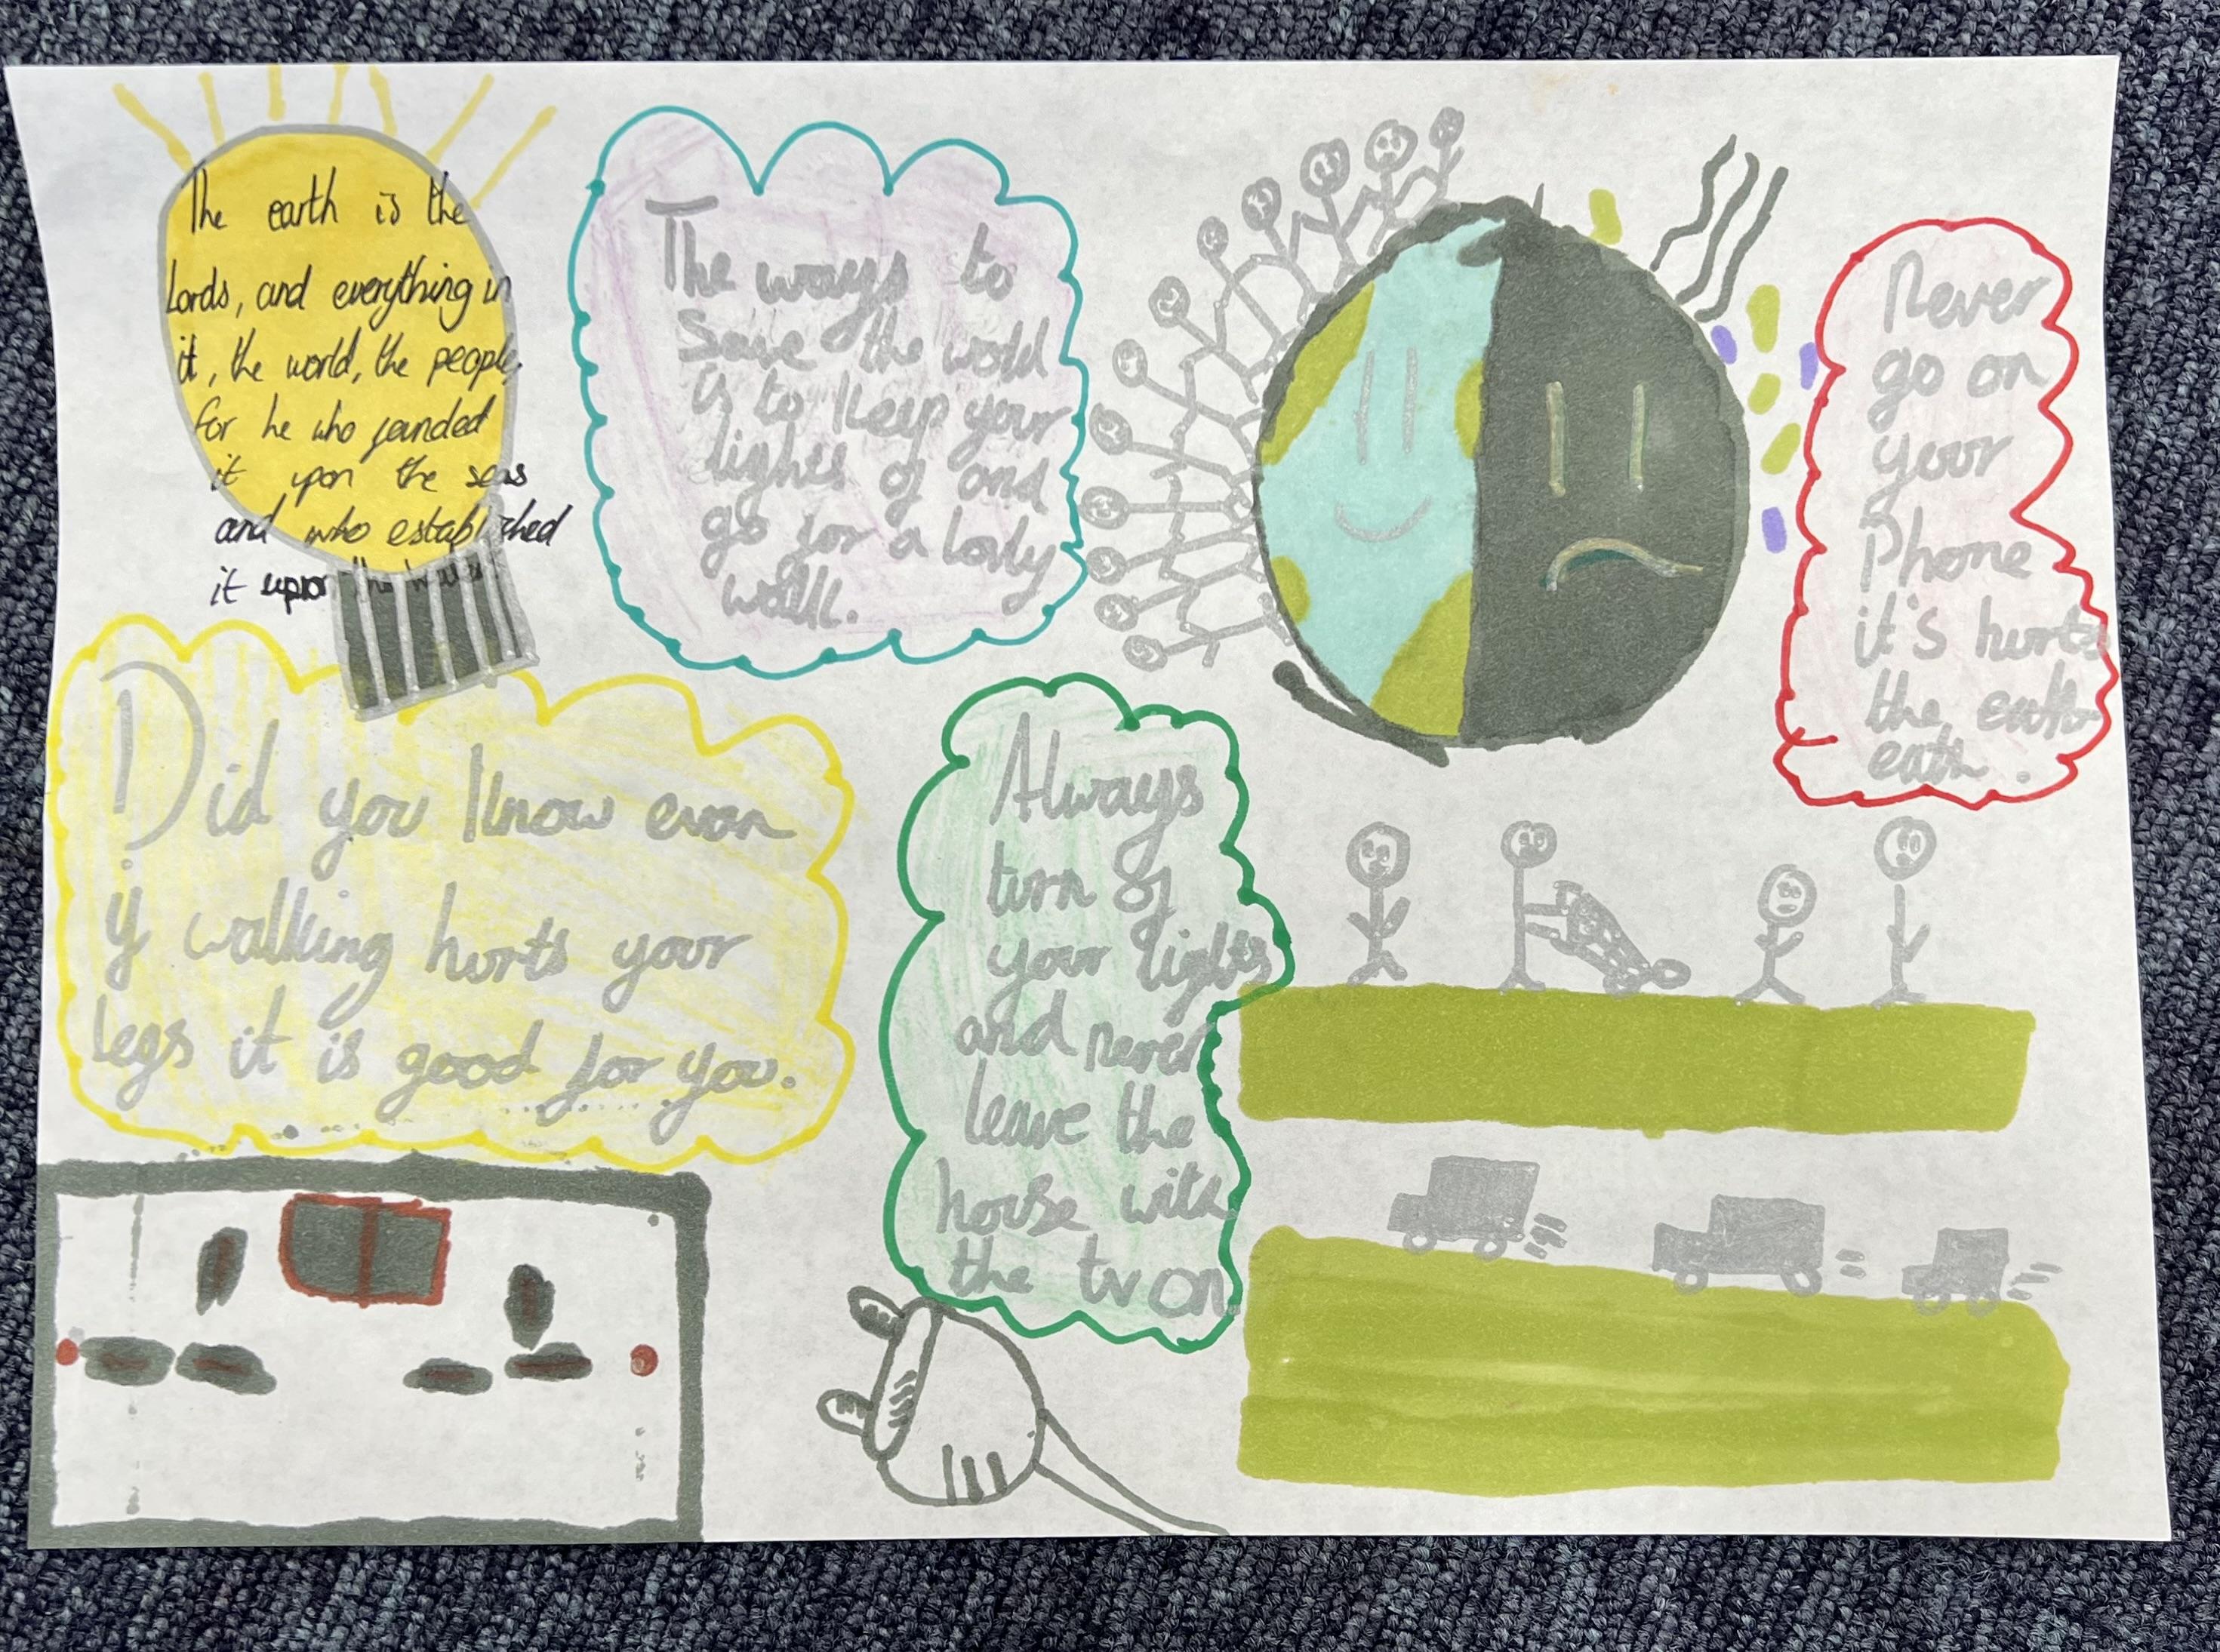 The earth is the
Lords, and everything in
it, the world, the people,
for he who founded
it upon the seas
and who established
it upon the
The ways to
Save the world
is to keep your
lights of and
go for a lovly
walk.
Never
go on
your
Phone
it's hurts
the earth
eath.
Did you know even
if walking hurts your
legs it is good for you.
Always
turn of
your lights
and never
leave the
house with
the tv on.